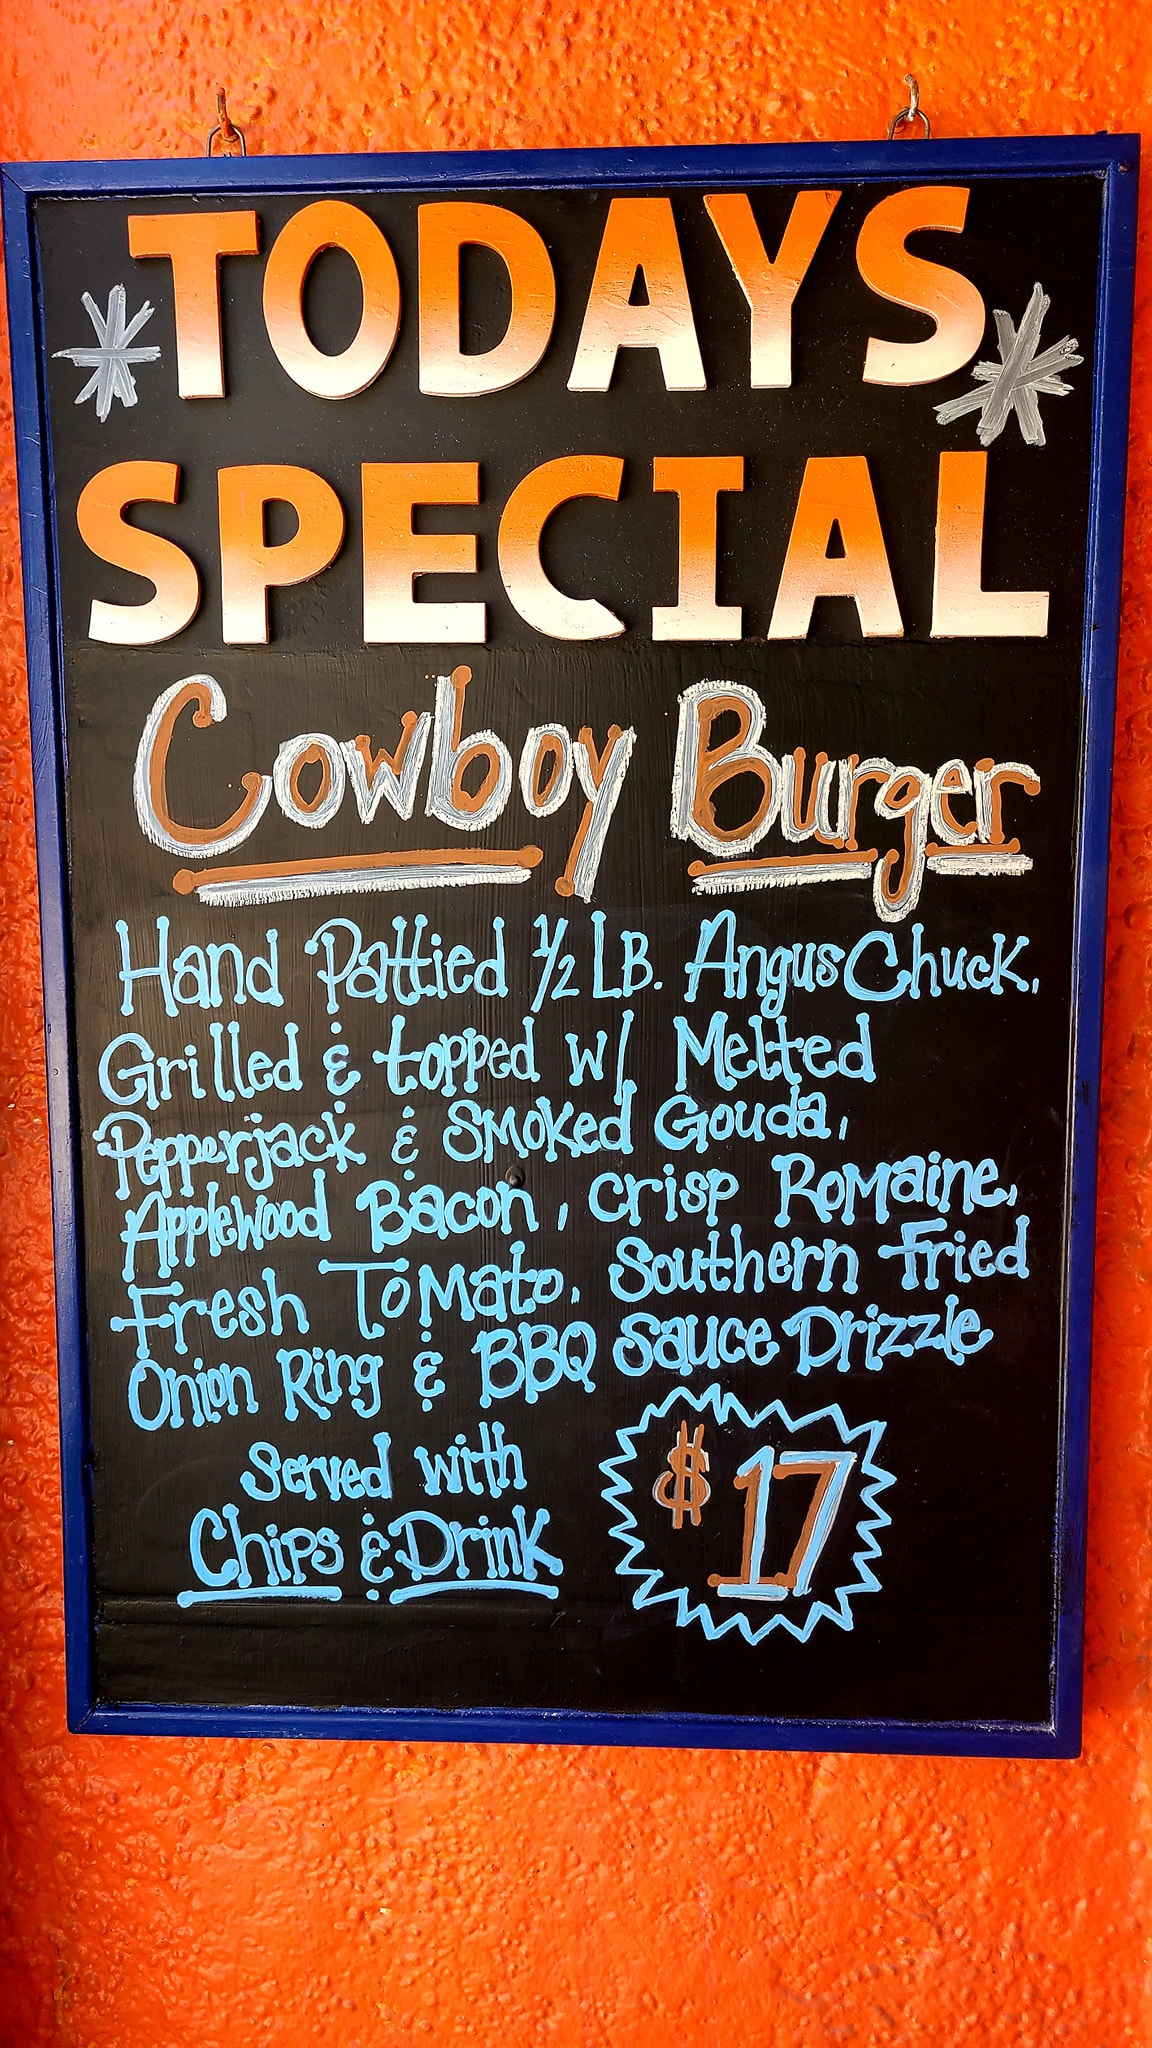 TODAYS
SPECIAL
Cowboy Burger
Hand Pattied 1/2 LB. Angus Chuck,
Grilled & topped w/ Melted
Pepperjack & Smoked Gouda,
Applewood Bacon, Crisp Romaine,
Fresh Tomato, Southern Fried
Onion Ring & BBQ Sauce Drizzle
Served with
Chips & Drink
$17